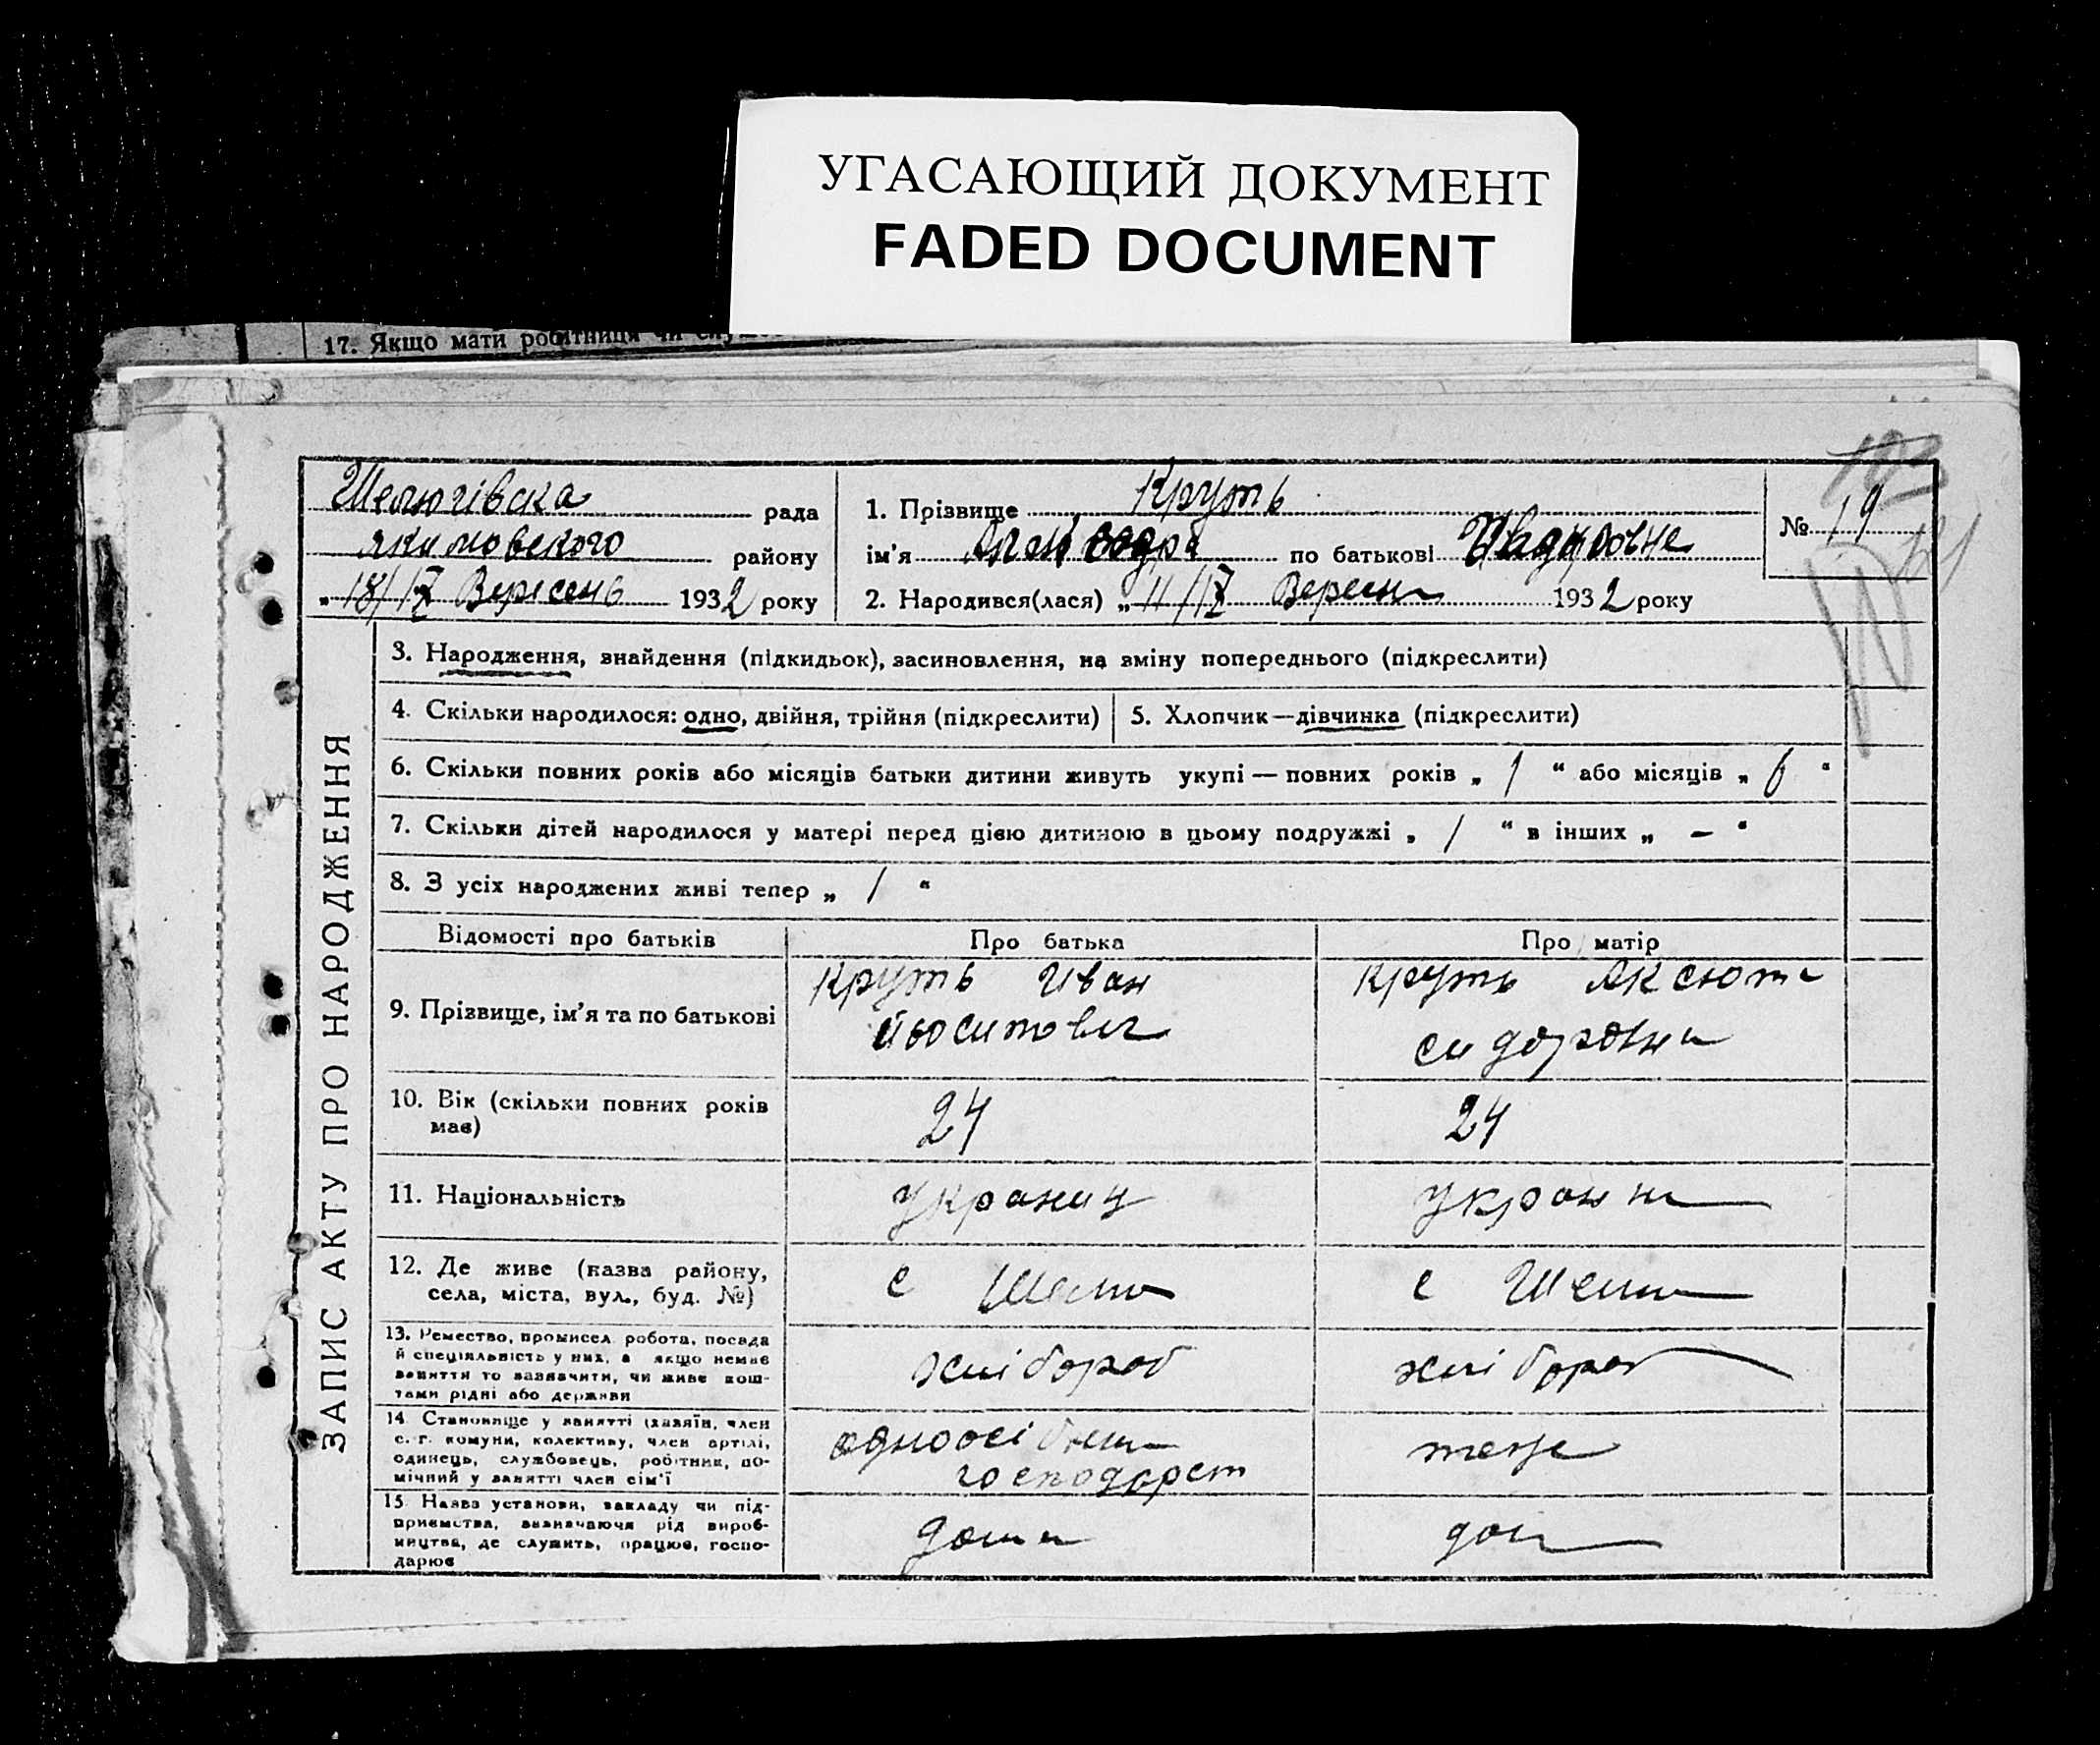 УГАСАЮЩИЙ ДОКУМЕНТ
FADED DOCUMENT
17. Якщо мати робітниця чи
Шелюгівска рада
якимовского району
„18/ІХ Вересень 1932 року
1. Прізвище Круть
ім'я по батькові
2. Народився(лася) „11/ІХ Вересня 1932 року
№ 19
ЗАПИС АКТУ ПРО НАРОДЖЕННЯ
3. Народження, знайдення (підкидьок), засиновлення, на зміну попереднього (підкреслити)
4. Скільки народилося: одно, двійня, трійня (підкреслити)
5. Хлопчик—дівчинка (підкреслити)
6. Скільки повних років або місяців батьки дитини живуть укупі — повних років „ 1 “ або місяців „ 6 “
7. Скільки дітей народилося у матері перед цією дитиною в цьому подружжі „ 1 “ в інших „ – “
8. З усіх народжених живі тепер „ 1 “
Відомості про батьків Про батька Про матір
9. Прізвище, ім'я та по батькові
Круть Иван
Йьоситович
Круть Аксюта
сидоровна
10. Вік (скільки повних років
має)
24 24
11. Національність
украинц
12. Де живе (назва району,
села, міста, вул., буд. №)
с
с
13. Ремество, промисел робота, посада
й спеціяльність у них, а якщо немає
заняття то зазначити, чи живе кош-
тами рідні або держави
хлібороб хлібороб
14. Становище у занятті (хазяїн, член
с.-г. комуни, колективу, член артілі,
одинець, службовець, робітник, по-
мічний у занятті член сім'ї
господарст
теж
15. Назва установи, закладу чи під-
приємства, зазначаючи рід вироб-
ництва, де служить, працює, госпо-
дарює
дома